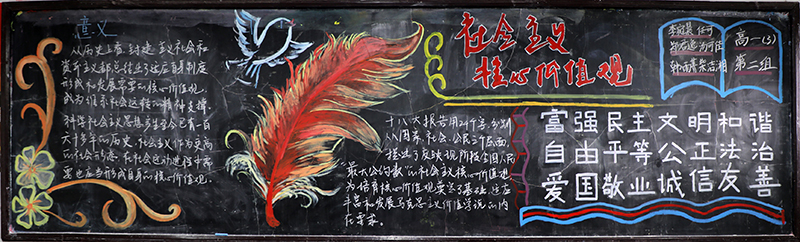 意义
从历史上看,封建主义社会和
资本主义都总结出了适应自身制度
形成和发展需要的核心价值观,
成为维系社会运转的精神支撑。
科学社会主义思想产生至今已有一百
六十多年的历史,社会主义作为更高
的社会形态,在社会运动过程中需
要也应当形成自身的核心价值观。
十八大报告用24个字,分别
从国家、社会、公民三个层面,
提出了反映现阶段全国人民
"最大公约数"的社会主义核心价值观
为培育核心价值观奠定了基础,适应
丰富和发展马克思主义价值学说的内
在需求。
社会主义
核心价值观
高一(3)
第二组
富强民主文明和谐
自由平等公正法治
爱国敬业诚信友善